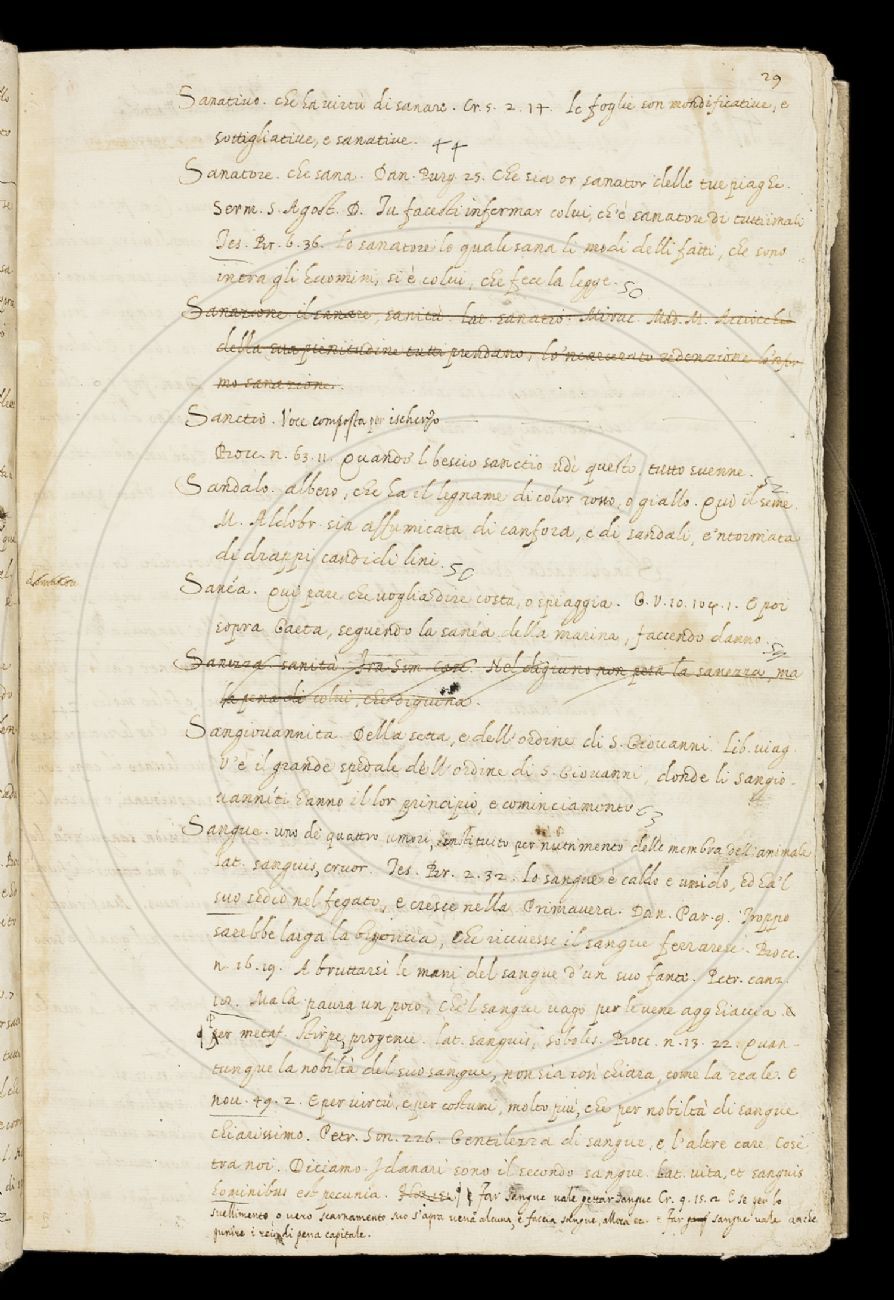 29
Sanativo. che ha virtù di sanare. Cr. 5. 2. 17. Le foglie son mondificative, e
sottigliative, e sanative. 44
Sanatore. che sana. Dan. Purg. 25. Che sia or sanator delle tue piaghe.
Serm. S. Agost. D. Tu facesti infermar colui, ch'è sanatore di tutti i mali
Tes. Br. 6. 36. Lo sanatore lo quale sana li modi delli fatti, che sono
intra gli huomini, si è colui, che fece la legge. 50
Sanazione il sanare, sanità. lat. sanatio. Mirac. Mad. M. Acciocchè
della sua plenitudine tutti prendano, lo 'ncarcerato redenzione lo 'nfer
mo sanazione.
Sanctio. Voce composta per ischerzo
Bocc. n. 63. 11. Quando l bescio sanctio udì questo, tutto svenne.
Sandalo. albero, che ha il legname di color rosso, o giallo. Qui il seme. 52
M. Aldobr. sia affumicata di canfora, e di sandali, e 'ntorniata
di drappi candidi lini. 50
Sanéa. qui pare che voglia dire costa, o spiaggia. G. V. 10. 104. 1. E poi
sopra Gaeta, seguendo la sanéa della marina, faccendo danno.
Sanezza sanità. Fra Sim. Casc. Nel digiuno non pera la sanezza, ma
la pena di colui, che digiuna.
Sangiovannita Della setta, e dell'ordine di S. Giovanni. Lib. viag.
V'è il grande spedale dell'ordine di S. Giovanni, donde li sangio-
vanníti hanno il lor principio, e cominciamento 63
Sangue. uno de quattro umori, instituito per nutrimento delle membra dell'animale
lat. sanguis, cruor. Tes. Br. 2. 32. Lo sangue è caldo e umido, ed ha 'l
suo sedio nel fegato, e cresce nella Primavera. Dan. Par. 9. Troppo
sarebbe larga la bigoncia, Che ricevesse il sangue ferrarese. Bocc.
n. 16. 19. A bruttarsi le mani del sangue d'un suo fante. Petr. canz.
Ma la paura un poco, Che 'l sangue vago per le vene agghiaccia.
per metaf. stirpe, progenie. lat. sanguis, soboles. Bocc. n. 13. 22. Quan-
tunque la nobiltà del suo sangue, non sia così chiara, come la reale. E
nov. 49. 2. E per virtù, e per costumi, molto più, che per nobiltà di sangue
chiarissimo. Petr. Son. 226. Gentilezza di sangue, e l'altre care Cose
tra noi. Diciamo. I danari sono il secondo sangue. Lat. vita, et sanguis
hominibus est pecunia. Far sangue vale gettar sangue Cr. 9. 15. 2. E se per lo
svellimento o vero scarnamento suo s'apra vena alcuna, e faccia sangue, allora ec. e Far sangue vale anche
punire i rei di pena capitale.